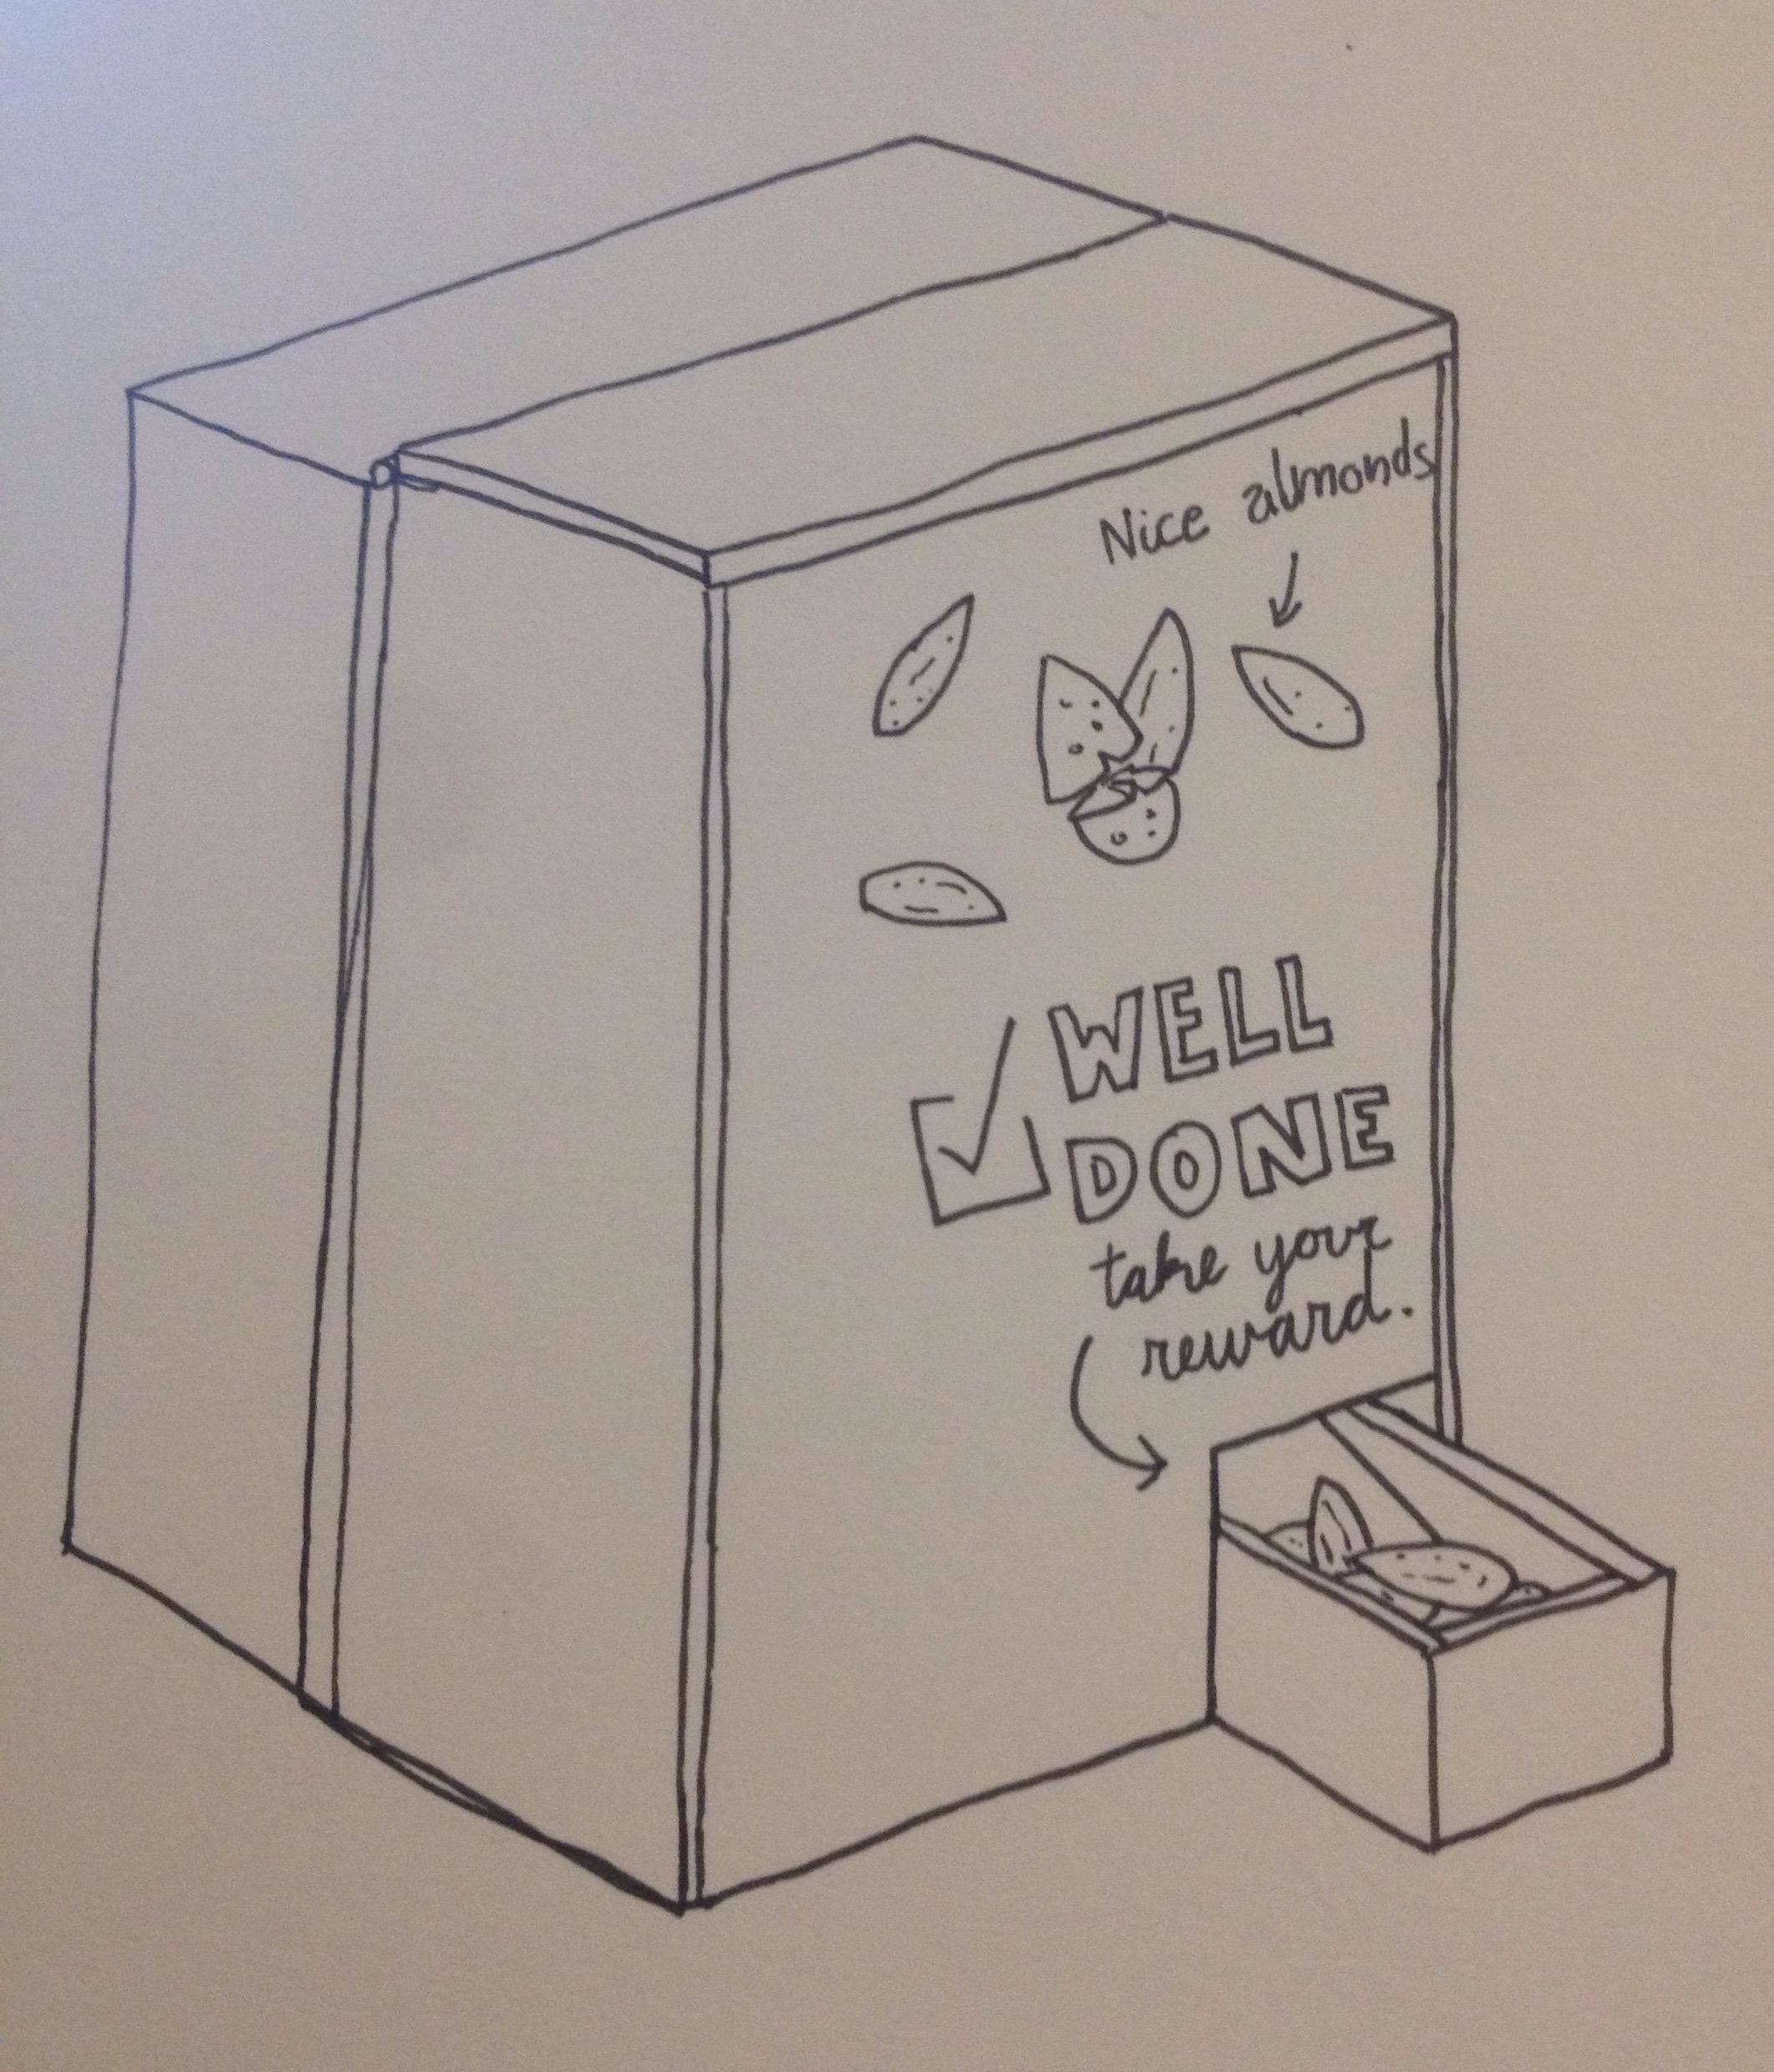 Nice almonds
WELL
DONE
take your
reward.